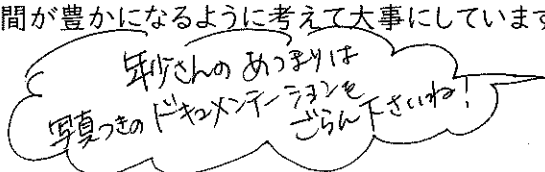 間が豊かになるように考えて大事にしています
年少さんの あつまりは
写真つきの ドキュメンテーションを
ごらん下さいね!